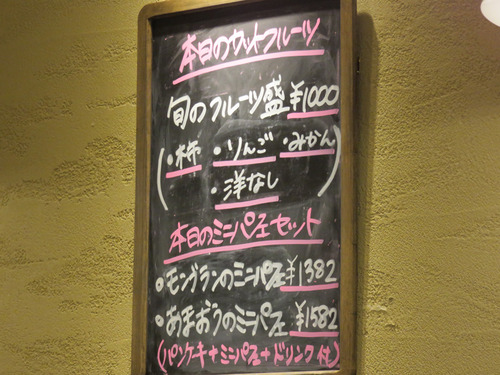 本日のカットフルーツ
旬のフルーツ盛¥1000
(・柿 ・りんご ・みかん
・洋なし)
本日のミニパフェセット
・モンブランのミニパフェ¥1382
・あまおうのミニパフェ ¥1582
(パンケーキ+ミニパフェ+ドリンク付)